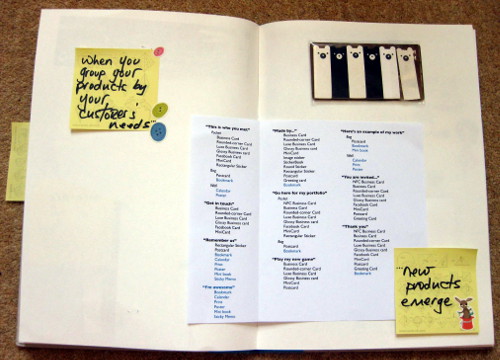 when you
group your
products by
your
customers'
needs"
"This is who you met"
Pocket
Business Card
Rounded-corner Card
Luxe Business Card
Glossy Business Card
Facebook Card
MiniCard
Rectangular Sticker
Bag
Postcard
Bookmark
Wall
Calendar
Poster
"Get in touch"
Business Card
Rounded-corner Card
Luxe Business Card
Glossy Business Card
Facebook Card
MiniCard
"Remember us"
Rectangular Sticker
Postcard
Bookmark
Calendar
Print
Poster
Mini book
Sticky Memo
"I'm awesome"
Bookmark
Calendar
Print
Poster
Mini book
Sticky Memo
"Made by..."
Business Card
Rounded-corner Card
Luxe Business Card
Glossy Business Card
MiniCard
Image maker
StickerBook
Round Sticker
Rectangular Sticker
Postcard
Greeting card
Bookmark
"Go here for my portfolio"
Pocket
NFC Business Card
Business Card
Rounded-corner Card
Luxe Business Card
Glossy Business Card
Facebook Card
MiniCard
Rectangular Sticker
Bag
Postcard
Bookmark
"Play my new game"
Business Card
Rounded-corner Card
Luxe Business Card
Glossy Business Card
MiniCard
Postcard
"Here's an example of my work"
Bag
Postcard
Bookmark
Mini book
Wall
Calendar
Print
Poster
"You are invited..."
NFC Business Card
Business Card
Rounded-corner Card
Luxe Business Card
Glossy Business Card
Facebook Card
MiniCard
Postcard
Greeting Card
"Thank you"
NFC Business Card
Business Card
Rounded-corner Card
Luxe Business Card
Glossy Business Card
Facebook Card
MiniCard
Postcard
Greeting Card
Bookmark
"new
products
emerge